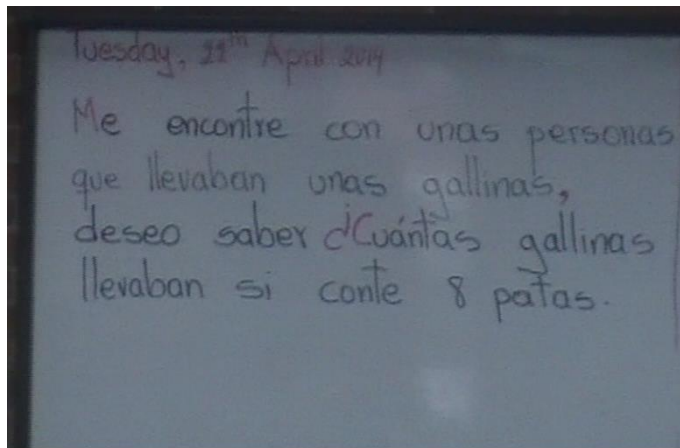 Tuesday, 22th April 2014
Me encontre con unas personas
que llevaban unas gallinas,
deseo saber ¿Cuántas gallinas
llevaban si conte 8 patas.